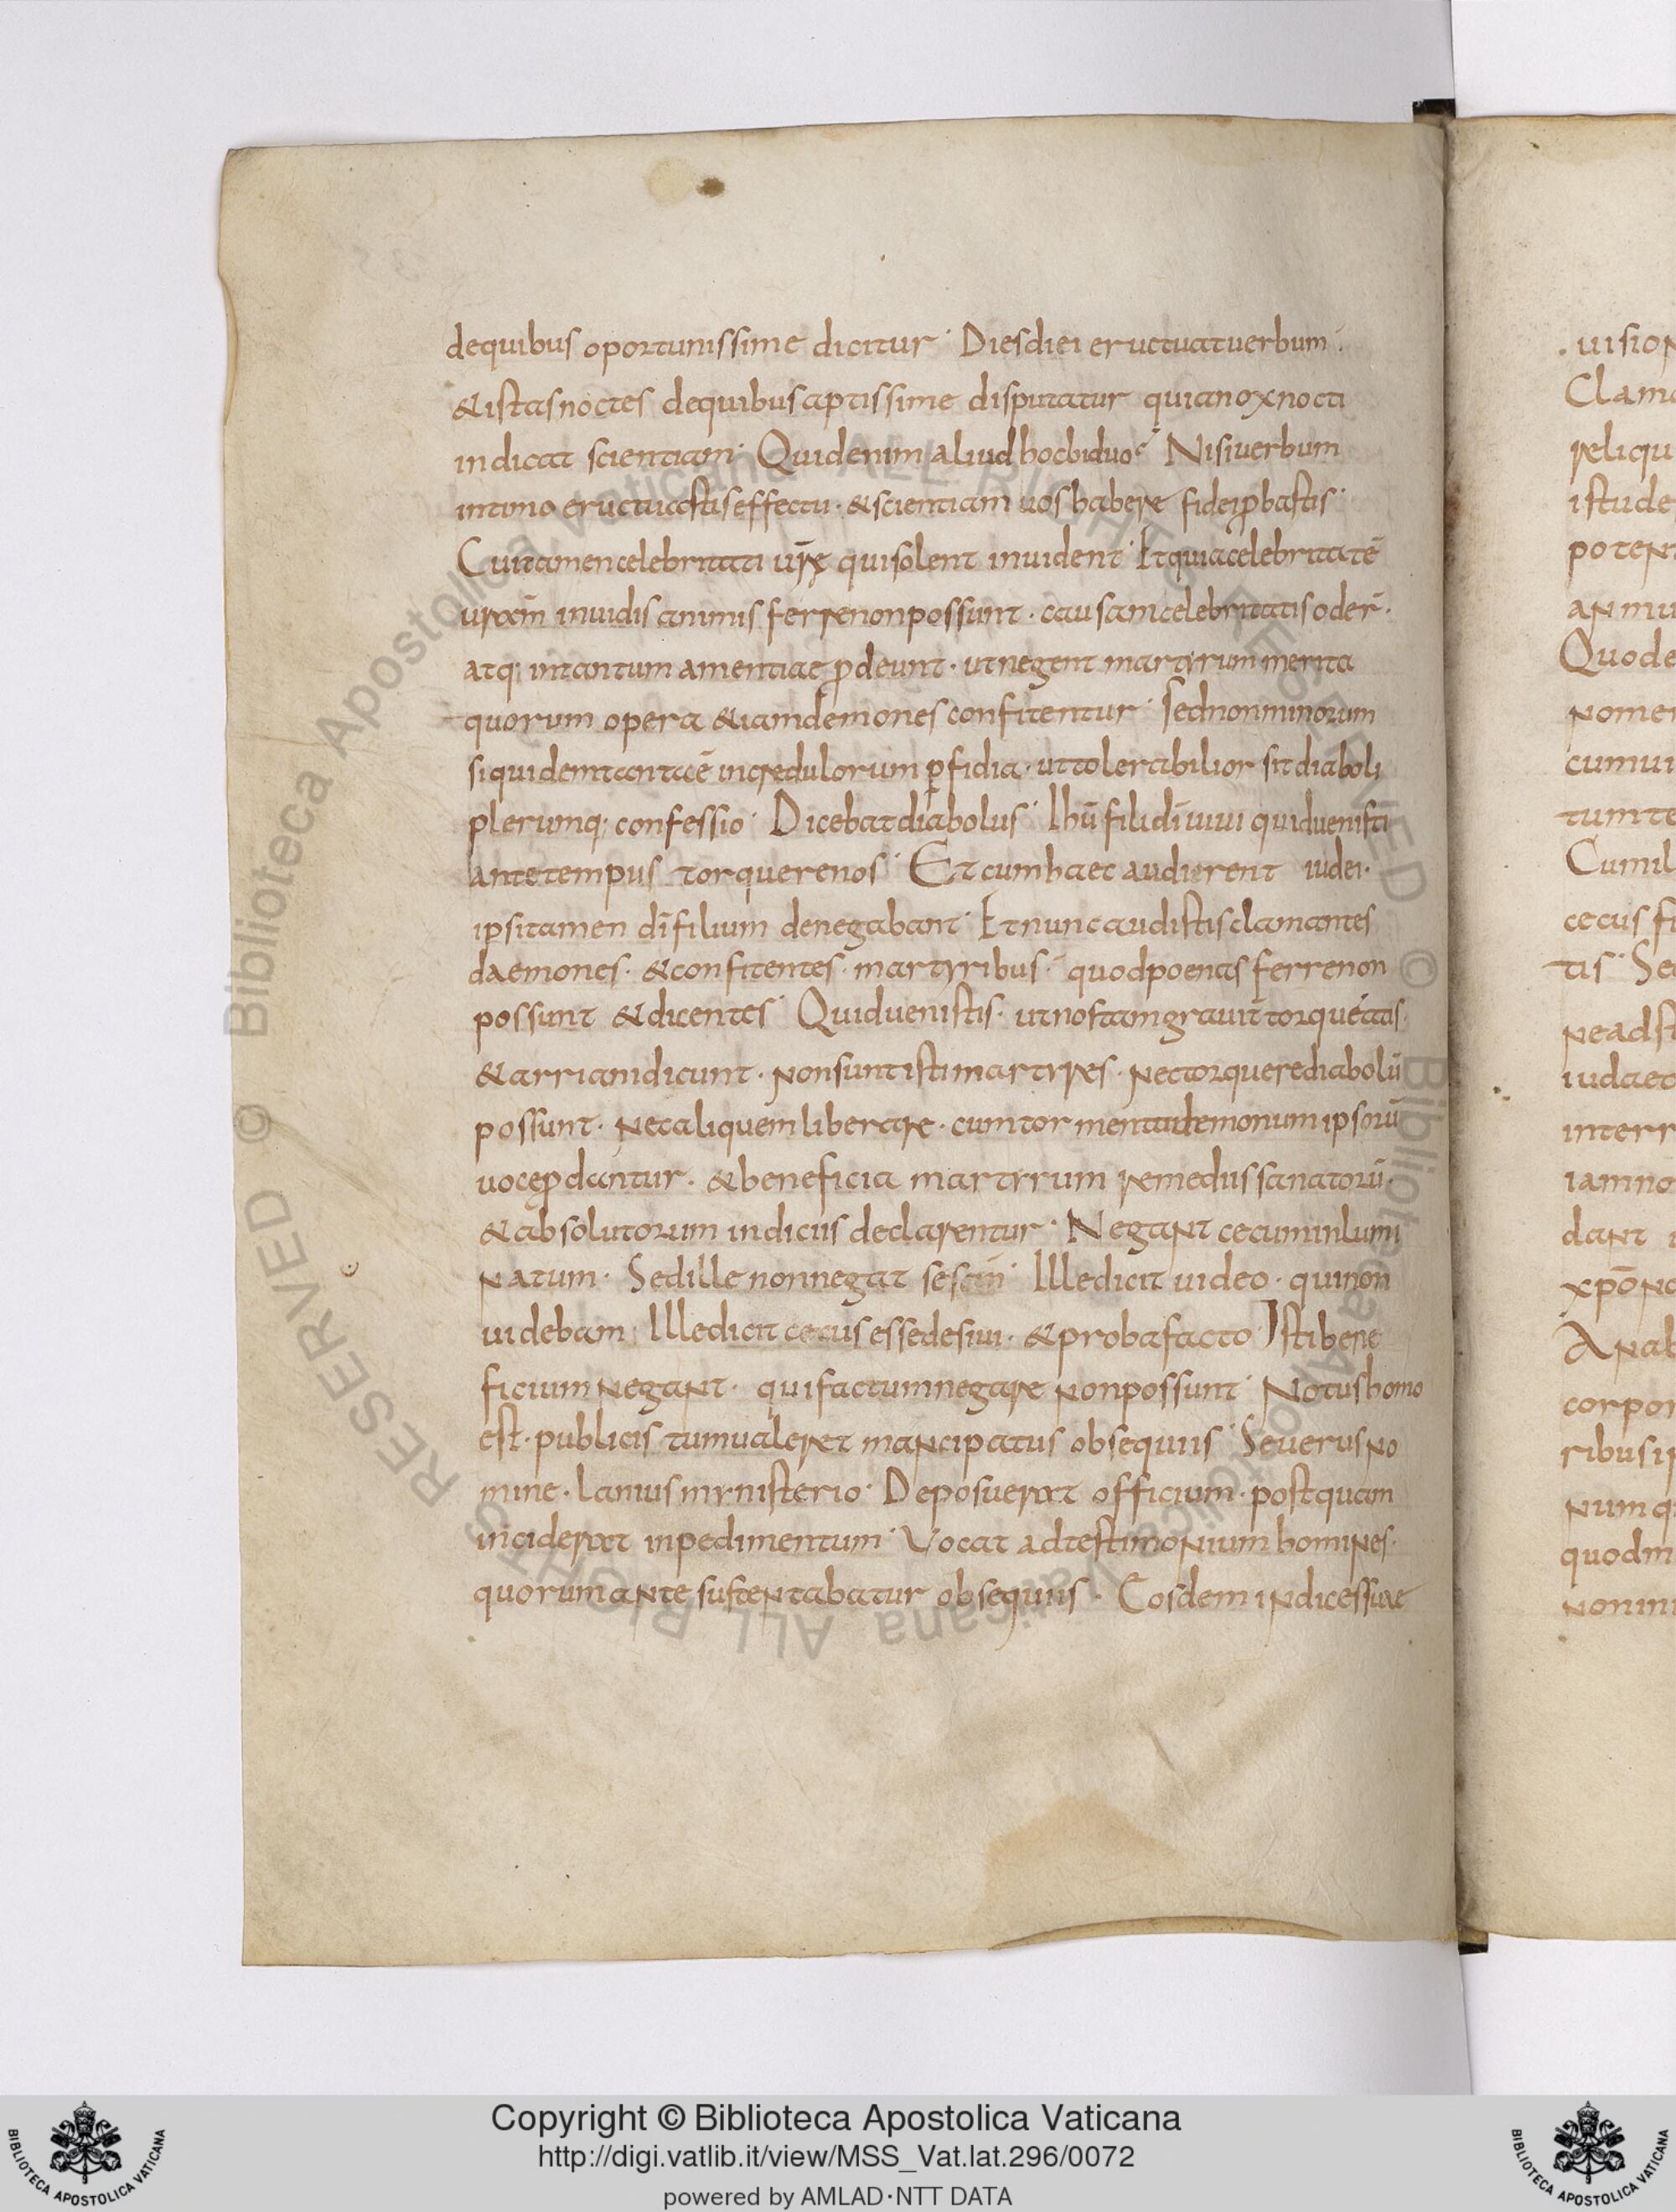 dequibus oportunissime dicitur· Diesdiei eructuatuerbum·
&istasnoctes dequibusaptissime disputatur quianoxnocti
indicat scientiam· Quidenim aliud hocbiduo Nisiuerbum
intimo eructuastiseffectu· &scientiam uoshabere fidei ꝓbastis·
Cuitamencelebritati urę quisolent inuident· Etquiacelebritatē
urām inuidis animis ferrenonpossunt· causamcelebritatisoder̄·
atq; intantum amentiae ꝓdeunt· utnegent martyrum merita
quorum opera &iamdemonesconfitentur· Sednonmirorum
siquidemtantaē incredulorum ꝑfidia· uttolerabilior sitdiaboli
plerumq; confessio· Dicebatdiabolus· Ihū filidī uiui quiduenisti
antetempus torquerenos· Etcumhaec audirent iudei·
ipsitamen dī filium denegabant· Etnuncaudistisclamantes
daemones· &confitentes· martyribus· quodpoenas ferrenon
possunt &dicentes· Quiduenistis· utnostamgrauit̄ torqueatis·
&arrianidicunt· nonsuntistimartyres· nectorquerediabolū
possunt· necaliquemliberare· cumtormentademonumipsorū
uoceꝓdantur· &beneficia martyrum remediissanatorū·
&absolutorum indiciis declarentur· Negant cecuminlumi
natum· Sedille nonnegat sesan̄· Illedicit uideo· quinon
uidebam· Illedicit cecusessedesiui· &probafacto· Istibene
ficiumnegant· quifactumnegare nonpossunt· Notushomo
est· publicis tumualeret mancipatus obsequiis· Seuerusno
mine· lanius mynisterio· Deposuerat officium· postquam
inciderat inpedimentum· Vocat adtestimonium homines·
quorumante sustentabatur obsequiis· Eosdemindicessuae
.uision
Clama
reliqu
istude
potent
anmu
Quode
nomen
cumui
tumte
Cumil
cecusfi
tis· Sed
neadst
iudaeo
interr
iamno
dant
xp̄ono
corpor
ribusi
numq
quodm
nonin
Copyright © Biblioteca Apostolica Vaticana
http://digi.vatlib.it/view/MSS_Vat.lat.296/0072
powered by AMLAD·NTT DATA
BIBLIOTECA APOSTOLICA VATICANA
BIBLIOTECA APOSTOLICA VATICANA
© Biblioteca Apostolica Vaticana ALL RIGHTS RESERVED
© Biblioteca Apostolica Vaticana ALL RIGHTS RESERVED